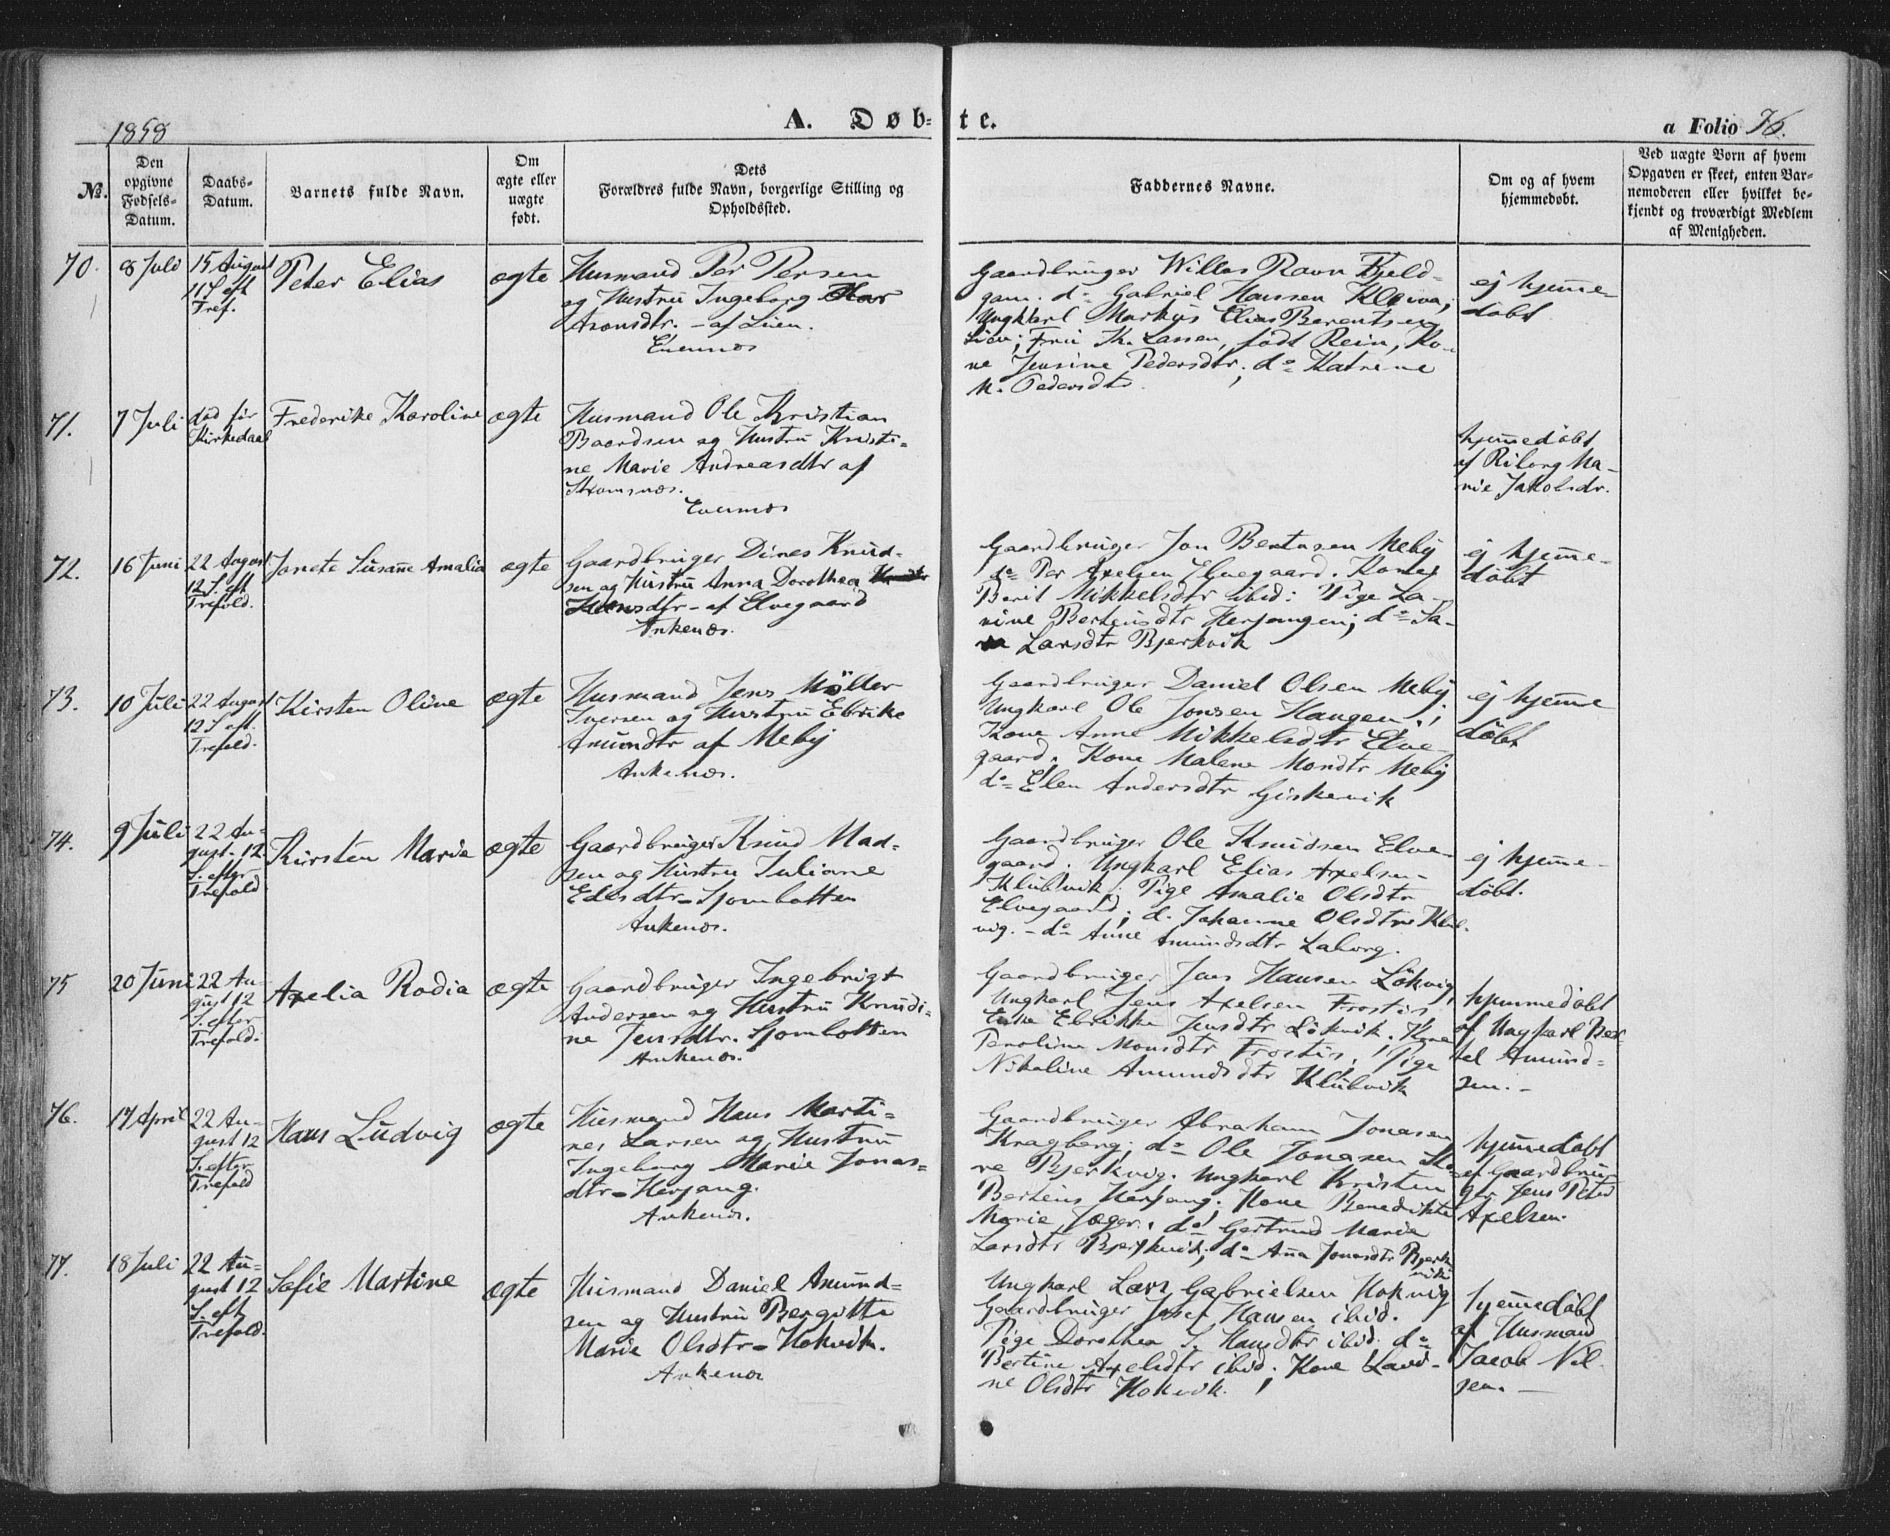 1858
A. Døb-te.
a Folio 76.
№.
Den opgivne Fødsels-Datum.
Daabs-Datum.
Barnets fulde Navn.
Om ægte eller uægte født.
Dets Forældres fulde Navn, borgerlige Stilling og Opholdssted.
Faddernes Navne.
Om og af hvem hjemmedøbt.
Ved uægte Born af hvem Opgaven er skeet, enten Barnemoderen eller hvilket bekjendt og troværdigt Medlem af Menigheden.
70.
8 Juli
15 August
11 S. eft
Tref.
Peter Elias
ægte
Husmand Per Persen
og Hustru Ingeborg
Aronsdtr. - af Lien.
Evennæs
Gaardbruger Willas Ravn Fjeld-
gam. do Gabriel Hansen Kleiva;
Ungkarl Markus Elias Berentsen
Lien; Fru Th. Lassen, født Rein, Ko-
ne Jensine Pedersdtr; do Katrine
M. Pedersdtr.
ej hjemme-
døbt
71.
7 Juli
død før
Kirkedaab
Frederike Karoline
ægte
Husmand Ole Kristian
Baardsen og Hustru Kristi-
ne Marie Andreasdtr af
Strømsnæs.
Evenæs
hjemmedøbt
af Riborg Ma-
rie Jakobsdr.
72.
16 Juni
22 August
12 S. eft
Trefold.
Janete Susanne Amalia
ægte
Gaardbruger Dines Knud-
sen og Hustru Anna Dorothea
Hansdtr - af Elvegaard
Ankenæs.
Gaardbruger Jon Bentusen Meby
do Per Axelsen Elvegaard. Kone
Berit Mikkelsdtr ibid: Pige La-
vine Bertensdtr Herjangen; do Sa-
ra Larsdtr Bjerkvik
ej hjemme-
døbt
73.
10 Juli
22 August
12 S eft.
Trefold.
Kirsten Oline
ægte
Husmand Jens Möller
Iversen og Hustru Ebrike
Amundtr af Meby
Ankenæs.
Gaardbruger Daniel Olsen Meby
Ungkarl Ole Jonsen Haugen;
Kone Anne Mikkelsdtr Elve-
gaard; Kone Malene Monsdtr Meby
do Elen Andersdtr Giskevik
ej hjemme
døbt
74.
9 Juli
22 Au-
gust. 12
S. efter
Trefold
Kirsten Maria
ægte
Gaardbruger Knud Mad-
sen og Hustru Juliane
Edisdtr - Sjombotten
Ankenæs.
Gaardbruger Ole Knudsen Elve-
gaard. Ungkarl Elias Axelsen
Klubvik. Pige Amalie Olsdtr
Elvegaard; d. Johanne Olsdtr Klub-
vig. - do Anne Amundsdtr Laberg.
ej hjemme-
døbt.
75
20 Juni
22 Au-
gust 12
S. efter
Trefold.
Axelia Rodia
ægte
Gaardbruger Ingebrigt
Andersen og Hustru Knudi-
ne Jensdtr. Sjombotten
Ankenæs.
Gaardbruger Jens Hansen Lökvig,
Ungkarl Jens Axelsen Frostis,
Enke Ebrikke Jensdtr Lökvik. Kone
Paroline Monsdtr Frostis. Pige
Nikoline Amundsdtr Klubvik
hjemmedøbt
af Ungkarl Ber-
tel Amund-
sen. -
76.
17 April
22 Au-
gust 12
S. efter
Trefold
Hans Ludvig
ægte
Husmand Hans Marti-
nes Larsen og Hustru
Ingeborg Marie Jonas-
dtr - Herjang.
Ankenæs.
Gaardbruger Abraham Jonasen
Kragberg; do Ole Jonasen
Bjerkvig. Ungkarl Kristen
Bertius Herjang. Kone Benedikte
Marie Jæger. do Gertrud Marie
Larsdtr Bjerkvik; do Ana Jonasdtr Bjerk-
vik
hjemmedøbt
af Gaardbru-
ger Jens Peter
Axelsen.
77.
18 Juli
22 Au-
gust 12
S. eft
Trefold.
Sofie Martine
ægte
Husmand Daniel Amund-
sen og Hustru Bergitte
Marie Olsdtr - Hokvik.
Ankenæs
Ungkarl Lars Gabrielsen Hokvig
Gaardbruger Josef Hansen ibid.
Pige Dorothea S. Hansdtr ibid. do
Bertine Axelsdtr ibid; Kone Lavi-
ne Olsdtr Hokvik.
hjemmedøbt
af Husmand
Jacob Nil-
sen. -